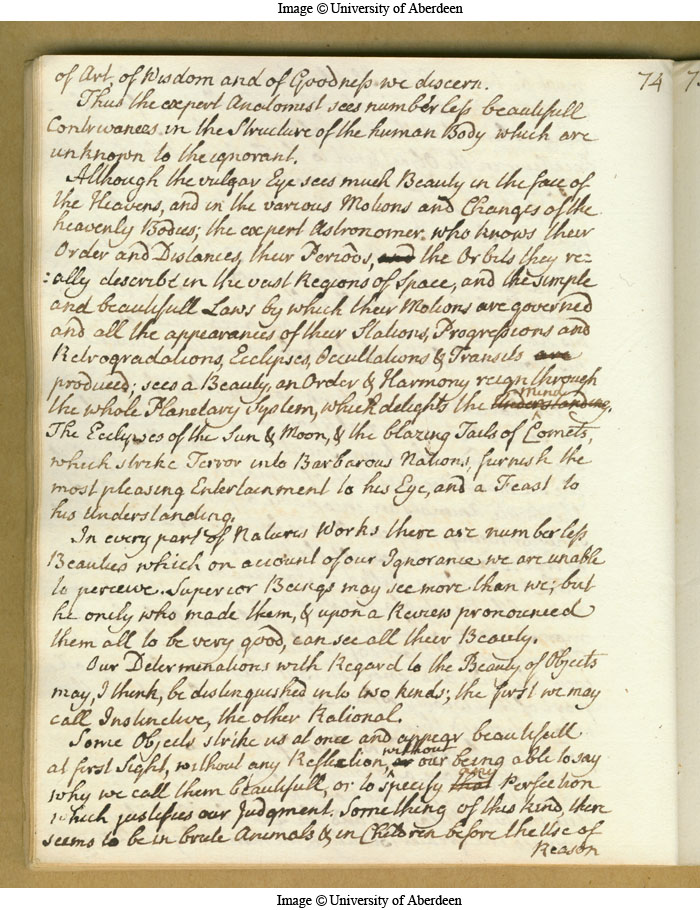 Image © University of Aberdeen
74
of Art, of Wisdom and of Goodness we discern.
Thus the expert Anatomist sees numberless beautifull
Contrivances in the Structure of the human Body which are
unknown to the ignorant.
Although the vulgar Eye sees much Beauty in the face of
the Heavens, and in the various Motions and Changes of the
heavenly Bodies; the expert Astronomer who knows their
Order and Distances, their Periods, and the Orbits they re:
:ally describe in the vast Regions of Space, and the simple
and beautifull Laws by which their Motions are governed
and all the appearances of their Stations, Progressions and
Retrogradations, Ecclipses, Occultations & Transits are
produced; sees a Beauty, an Order & Harmony reign through
mind
the whole Planetary System, which delights the understanding.
The Ecclipses of the Sun & Moon, & the blazing Tails of Comets,
which strike Terror into Barbarous Nations, furnish the
most pleasing Entertainment to his Eye, and a Feast to
his understanding.
In every part of Natures Works there are numberless
Beauties which on account of our Ignorance we are unable
to perceive. Superior Beings may see more than we; but
he onely who made them, & upon a Review pronounced
them all to be very good, can see all their Beauty.
Our Determinations with Regard to the Beauty of Objects
may, I think, be distinguished into two kinds; the first we may
call Instinctive, the other Rational.
Some Objects strike us at once and appear beautifull
without
at first Sight, without any Reflection, or our being able to say
any
why we call them beautifull, or to specify that Perfection
which justifies our Judgment. Something of this kind there
seems to be in brute Animals & in Children before the Use of
Reason
Image © University of Aberdeen